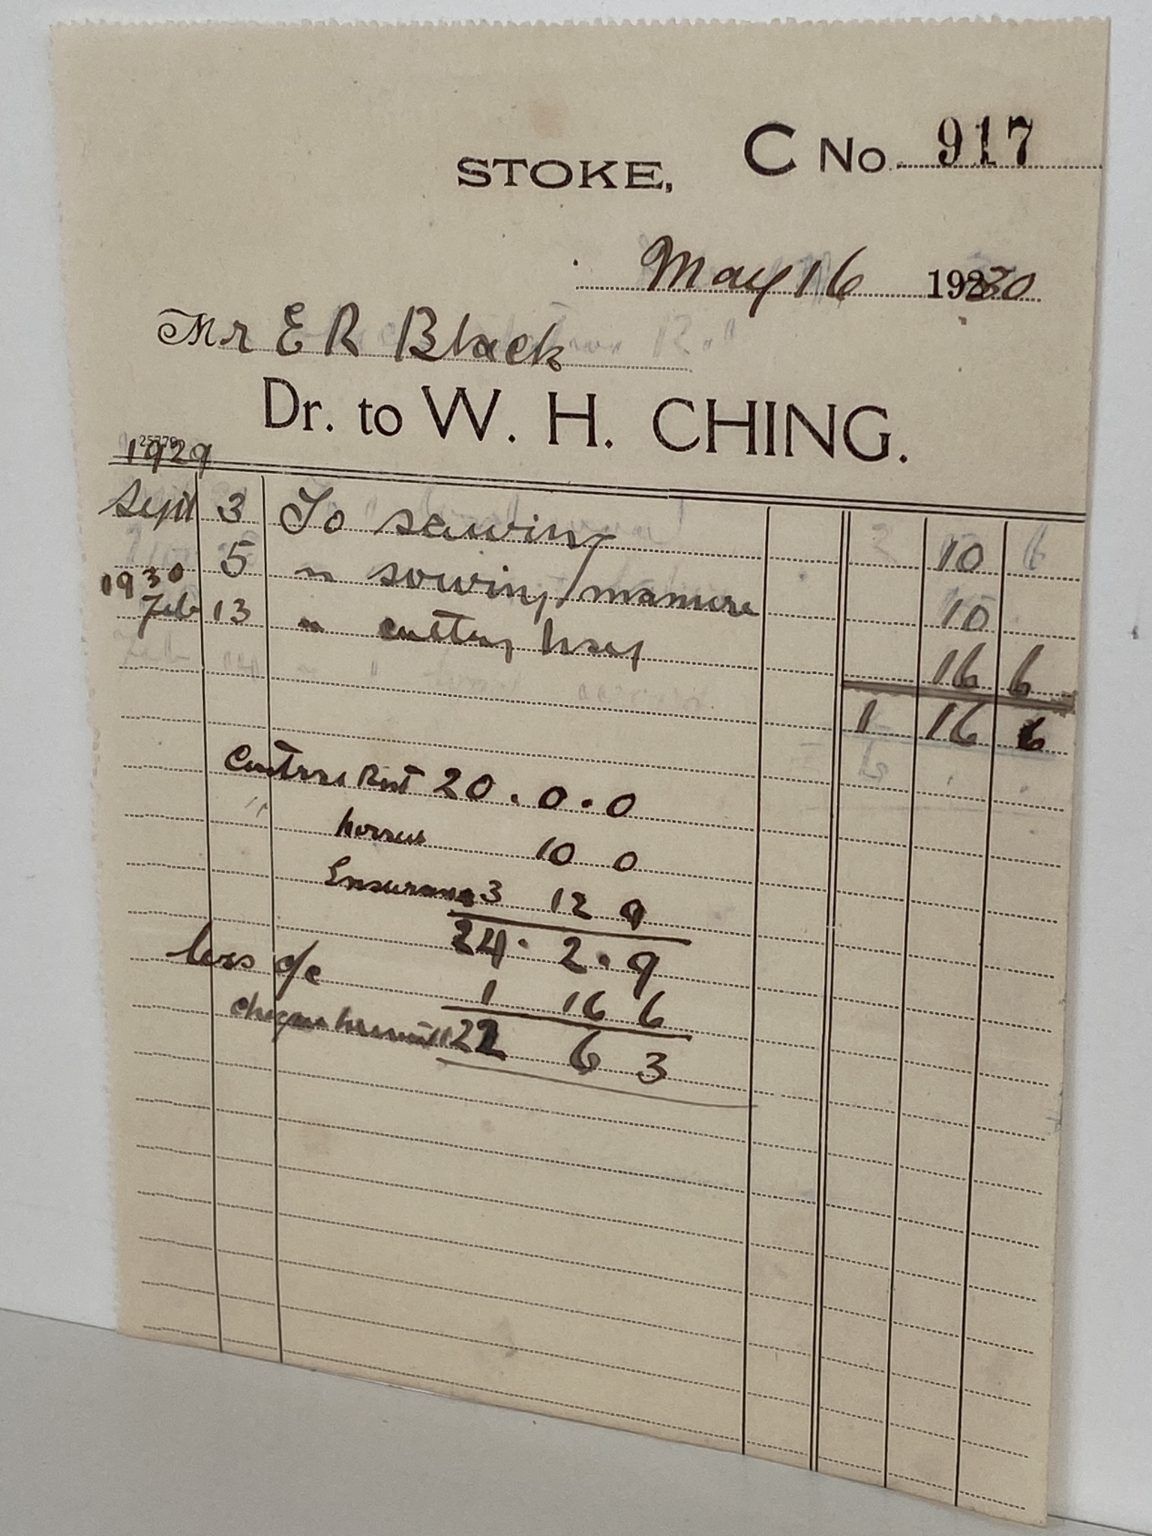 C No. 917
STOKE,
May 16 19230
Mr E R Black
Dr. to W. H. CHING.
1929
Sept 3 To sawing 10
5 " sowing manure 10
1930
Feb 13 " cutting hay 16 6
1 16 6
Rent 20 . 0 . 0
" horses 10 0
Insurance 3 12 9
24 . 2 . 9
less a/c 1 16 6
cheque 22 6 3